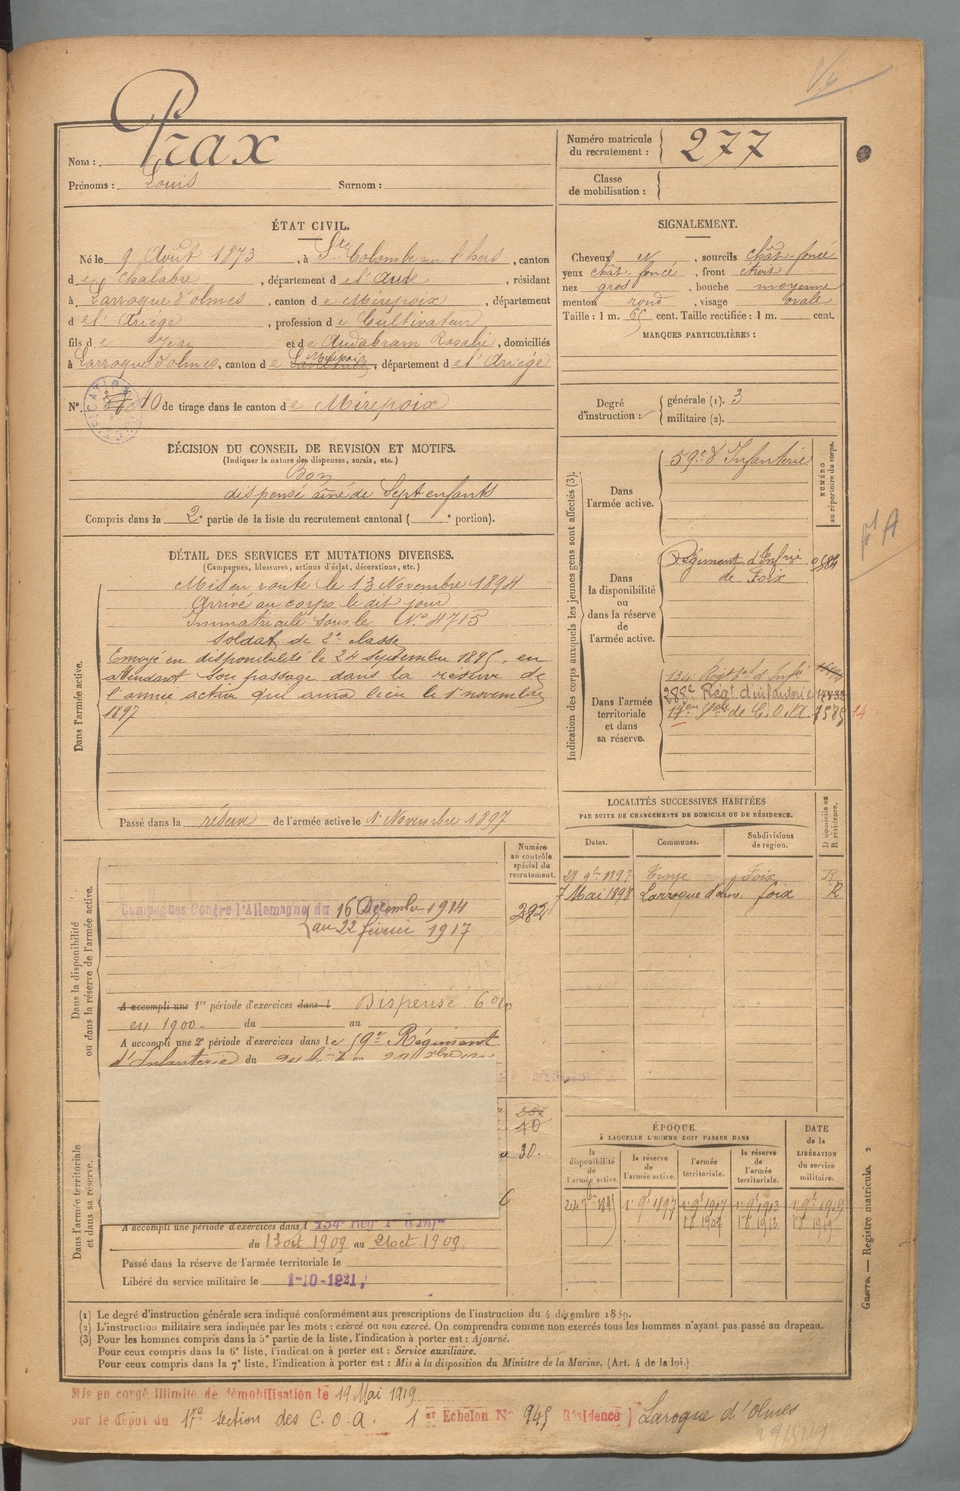 Prax
Nom :
Prénoms : Louis Surnom :
Numéro matricule du recrutement : 277
Classe de mobilisation :
ÉTAT CIVIL.
Né le 9 Août 1873, à Ste Colombe sur l'hers, canton
de Chalabre, département de l'Aude, résidant
à Larroque d'olmes, canton de Mirepoix, département
de l'Ariège, profession de Cultivateur
fils de Jean et de Audabram Rosalie, domiciliés
à Larroque d'olmes, canton de Mirepoix, département de l'Ariège
N° 10 de tirage dans le canton de Mirepoix
SIGNALEMENT.
Cheveux N, sourcils Chât-foncé
yeux chât-foncé, front étroit
nez gros, bouche moyenne
menton rond, visage ovale
Taille : 1 m. 65 cent. Taille rectifiée : 1 m. cent.
MARQUES PARTICULIÈRES :
Degré d'instruction : générale (1). 3
militaire (2).
DÉCISION DU CONSEIL DE REVISION ET MOTIFS.
(Indiquer la nature des dispenses, sursis, etc.)
Bon
dispensé aîné de Sept enfants
Compris dans la 2e partie de la liste du recrutement cantonal ( e portion).
DÉTAIL DES SERVICES ET MUTATIONS DIVERSES.
(Campagnes, blessures, actions d'éclat, décorations, etc.)
Dans l'armée active.
Mis en route le 13 Novembre 1894
Arrivé au corps le dit jour
Immatriculé sous le N° 4715
Soldat de 2e classe
Envoyé en disponibilité le 24 septembre 1895, en
attendant son passage dans la réserve de
l'armée active qui aura lieu le 1er novembre
1897
Passé dans la réserve de l'armée active le 1er Novembre 1897
Indication des corps auxquels les jeunes gens sont affectés (3).
NUMÉRO au répertoire du corps.
Dans l'armée active.
59e d'Infanterie
Dans la disponibilité ou dans la réserve de l'armée active.
Régiment d'Infrie
de Foix
Dans l'armée territoriale et dans sa réserve.
134 Régt d'Infie
288e Regt d'infanterie
17e Son de C.O.A. 14
pl A
LOCALITÉS SUCCESSIVES HABITÉES
PAR SUITE DE CHANGEMENTS DE DOMICILE OU DE RÉSIDENCE.
Dates. Communes. Subdivisions de région. D domicile ou R résidence.
28 9bre 1897 Troye Foix R
7 Mai 1898 Larroque d'olm. foix R
Dans la disponibilité ou dans la réserve de l'armée active.
Numéro au contrôle spécial du recrutement.
Campagnes Contre l'Allemagne du 16 Décembre 1914
au 22 février 1917
282
A accompli une 1re période d'exercices dans l Dispensé 6 o/o
en 1900 du au
A accompli une 2e période d'exercices dans le 59e Régiment
d'Infanterie du
40
30
Dans l'armée territoriale et dans sa réserve.
A accompli une période d'exercices dans l 134e Régt d'Infie
du 13 oct 1909 au 21 oct 1909.
Passé dans la réserve de l'armée territoriale le
Libéré du service militaire le 1-10-1921.
ÉPOQUE
À LAQUELLE L'HOMME DOIT PASSER DANS
la disponibilité de l'armée active. la réserve de l'armée active. l'armée territoriale. la réserve de l'armée territoriale.
DATE de la LIBÉRATION du service militaire.
1er 9b 1897 1er 9b 1907 1er 9b 1913 1er 9b 1919
Guerre. — Registre matricule. 2
(1) Le degré d'instruction générale sera indiqué conformément aux prescriptions de l'instruction du 4 décembre 1889.
(2) L'instruction militaire sera indiquée par les mots : exercé ou non exercé. On comprendra comme non exercés tous les hommes n'ayant pas passé au drapeau.
(3) Pour les hommes compris dans la 5e partie de la liste, l'indication à porter est : Ajourné.
Pour ceux compris dans la 6e liste, l'indication à porter est : Service auxiliaire.
Pour ceux compris dans la 7e liste, l'indication à porter est : Mis à la disposition du Ministre de la Marine. (Art. 4 de la loi.)
Mis en congé illimité de démobilisation le 19 Mai 1919
par le dépôt du 17e section des C.O.A. 1er Echelon N° 945 Résidence Laroque d'Olmes